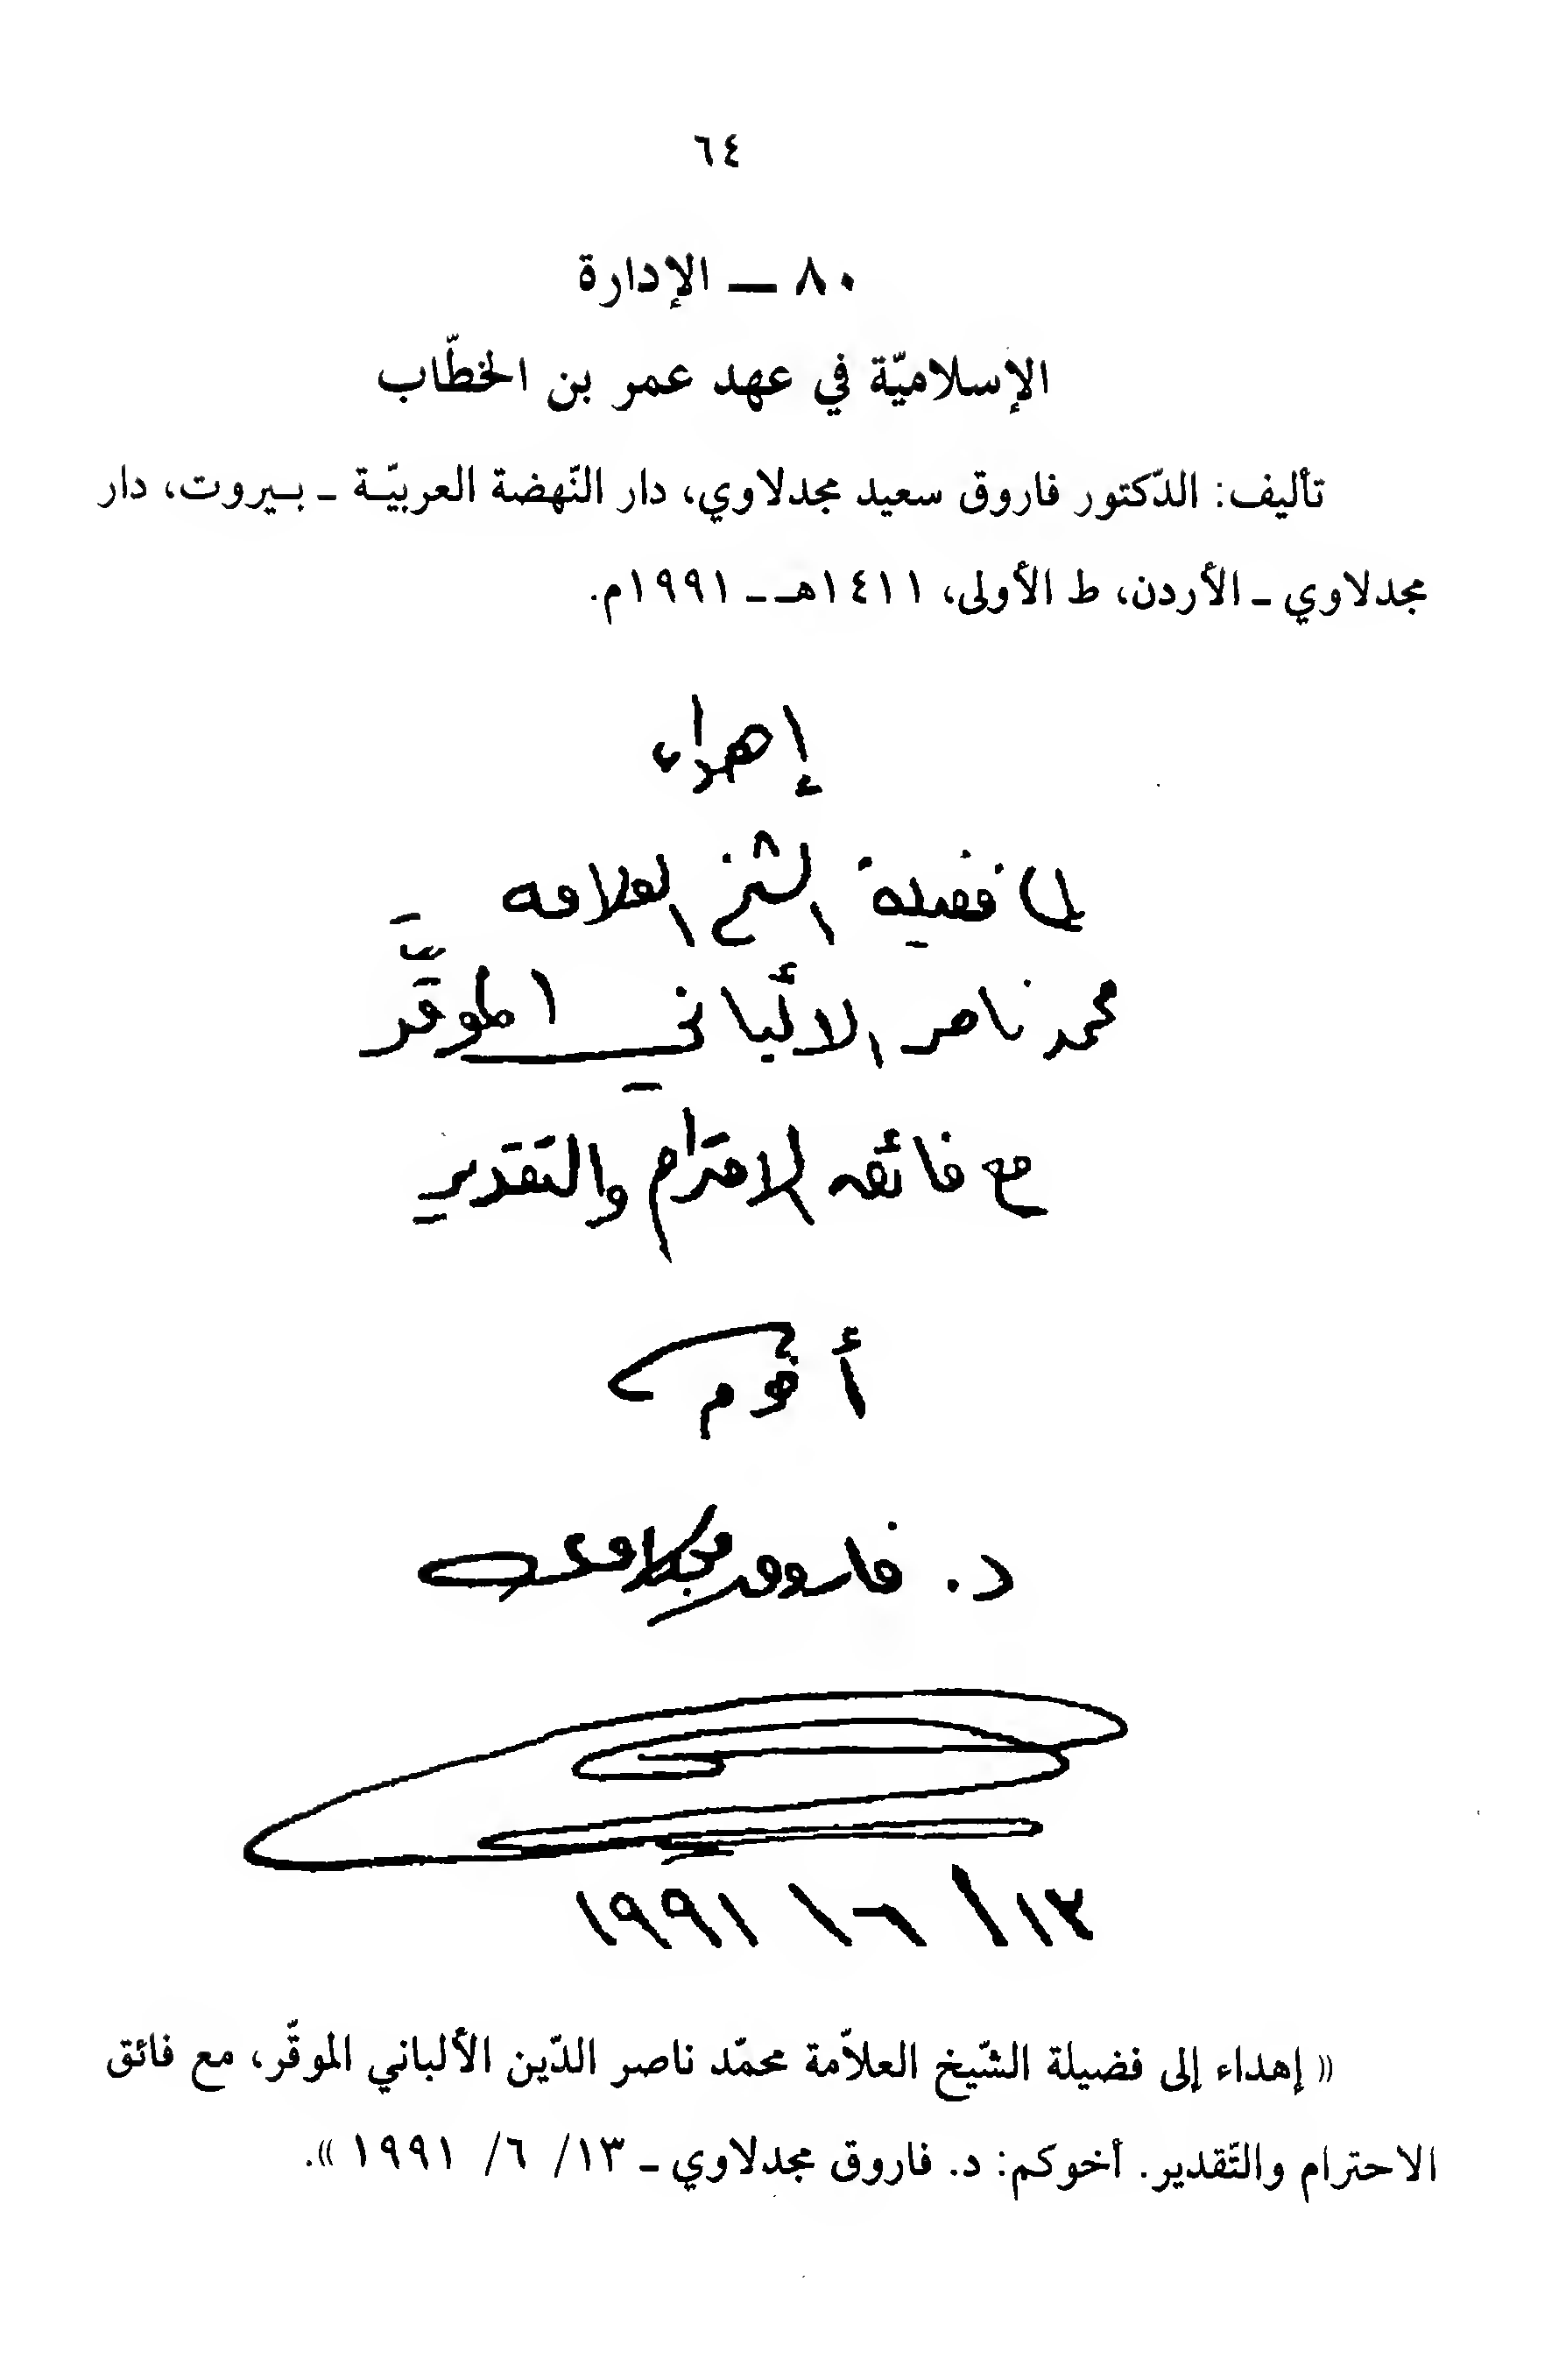 ٦٤
٨٠ — الإدارة
الإسلاميّة في عهد عمر بن الخطّاب
تأليف: الدّكتور فاروق سعيد مجدلاوي، دار النّهضة العربيّة - بيروت، دار
مجدلاوي - الأردن، ط الأولى، ١٤١١هـ - ١٩٩١م.
إهداء
إلى فضيلة الشيخ العلامة
محمد ناصر الألباني الموقَّر
مع فائق الاحترام والتقدير
أخوكم
د. فاروق مجدلاوي
١٣/ ٦/ ١٩٩١
« إهداء إلى فضيلة الشّيخ العلاّمة محمّد ناصر الدّين الألباني الموقّر، مع فائق
الاحترام والتّقدير. أخوكم: د. فاروق مجدلاوي - ١٣/ ٦/ ١٩٩١ ».